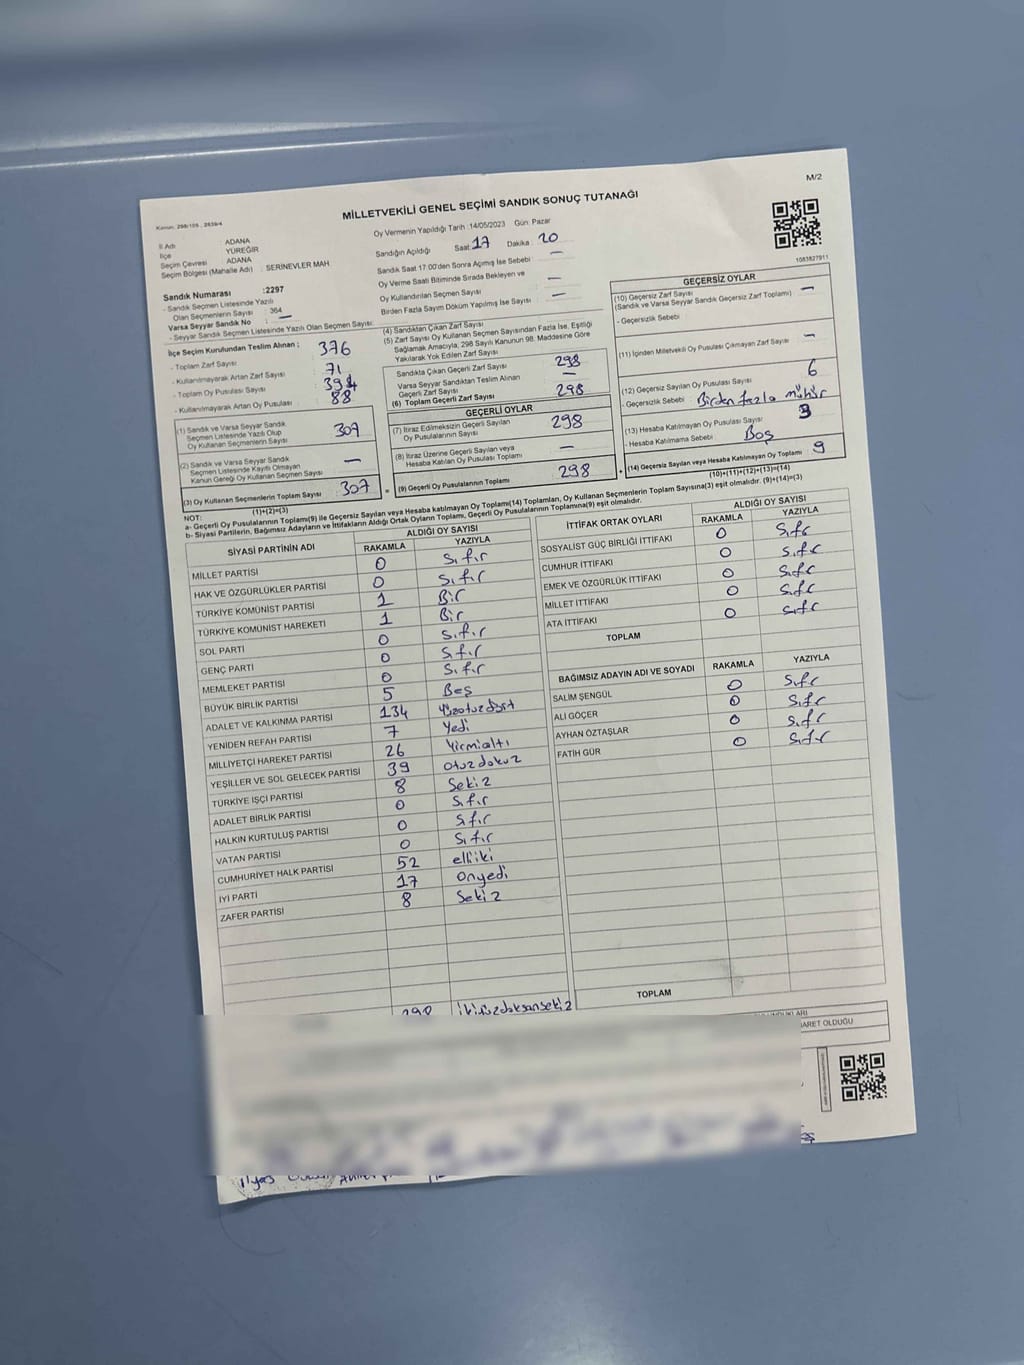 M/2
Kanun: 298/105 , 2839/4
MİLLETVEKİLİ GENEL SEÇİMİ SANDIK SONUÇ TUTANAĞI
1083827911
İl Adı ADANA
İlçe YÜREĞİR
Seçim Çevresi ADANA
Seçim Bölgesi (Mahalle Adı) : SERİNEVLER MAH.
Oy Vermenin Yapıldığı Tarih :14/05/2023 Gün: Pazar
Sandığın Açıldığı Saat 17 Dakika : 20
Sandık Saat 17:00'den Sonra Açımış İse Sebebi : —
Oy Verme Saati Bitiminde Sırada Bekleyen ve
Oy Kullandırılan Seçmen Sayısı : —
Birden Fazla Sayım Döküm Yapılmış İse Sayısı : —
Sandık Numarası :2297
- Sandık Seçmen Listesinde Yazılı
Olan Seçmenlerin Sayısı : 364
Varsa Seyyar Sandık No : —
- Seyyar Sandık Seçmen Listesinde Yazılı Olan Seçmen Sayısı:
İlçe Seçim Kurulundan Teslim Alınan ;
- Toplam Zarf Sayısı : 376
- Kullanılmayarak Artan Zarf Sayısı : 71
- Toplam Oy Pusulası Sayısı : 394
- Kullanılmayarak Artan Oy Pusulası : 88
(1) Sandık ve Varsa Seyyar Sandık
Seçmen Listesinde Yazılı Olup
Oy Kullanan Seçmenlerin Sayısı 307
(2) Sandık ve Varsa Seyyar Sandık
Seçmen Listesinde Kayıtlı Olmayan
Kanun Gereği Oy Kullanan Seçmen Sayısı —
(3) Oy Kullanan Seçmenlerin Toplam Sayısı : 307
(1)+(2)=(3)
(4) Sandıktan Çıkan Zarf Sayısı
(5) Zarf Sayısı Oy Kullanan Seçmen Sayısından Fazla İse, Eşitliği
Sağlamak Amacıyla, 298 Sayılı Kanunun 98. Maddesine Göre
Yakılarak Yok Edilen Zarf Sayısı
Sandıkta Çıkan Geçerli Zarf Sayısı 298
Varsa Seyyar Sandıktan Teslim Alınan
Geçerli Zarf Sayısı —
(6) Toplam Geçerli Zarf Sayısı 298
GEÇERLİ OYLAR
(7) İtiraz Edilmeksizin Geçerli Sayılan
Oy Pusulalarının Sayısı 298
(8) İtiraz Üzerine Geçerli Sayılan veya
Hesaba Katılan Oy Pusulası Toplamı —
= (9) Geçerli Oy Pusulalarının Toplamı 298
GEÇERSİZ OYLAR
(10) Geçersiz Zarf Sayısı
(Sandık ve Varsa Seyyar Sandık Geçersiz Zarf Toplamı) —
- Geçersizlik Sebebi
(11) İçinden Milletvekili Oy Pusulası Çıkmayan Zarf Sayısı —
(12) Geçersiz Sayılan Oy Pusulası Sayısı 6
- Geçersizlik Sebebi Birden fazla mühür
(13) Hesaba Katılmayan Oy Pusulası Sayısı 3
- Hesaba Katılmama Sebebi Boş
+ (14) Geçersiz Sayılan veya Hesaba Katılmayan Oy Toplamı 9
(10)+(11)+(12)+(13)=(14)
NOT:
a- Geçerli Oy Pusulalarının Toplamı(9) ile Geçersiz Sayılan veya Hesaba katılmayan Oy Toplamı(14) Toplamları, Oy Kullanan Seçmenlerin Toplam Sayısına(3) eşit olmalıdır. (9)+(14)=(3)
b- Siyasi Partilerin, Bağımsız Adayların ve İttifakların Aldığı Ortak Oyların Toplamı, Geçerli Oy Pusulalarının Toplamına(9) eşit olmalıdır.
SİYASİ PARTİNİN ADI ALDIĞI OY SAYISI
RAKAMLA YAZIYLA
MİLLET PARTİSİ 0 Sıfır
HAK VE ÖZGÜRLÜKLER PARTİSİ 0 Sıfır
TÜRKİYE KOMÜNİST PARTİSİ 1 Bir
TÜRKİYE KOMÜNİST HAREKETİ 1 Bir
SOL PARTİ 0 Sıfır
GENÇ PARTİ 0 Sıfır
MEMLEKET PARTİSİ 0 Sıfır
BÜYÜK BİRLİK PARTİSİ 5 Beş
ADALET VE KALKINMA PARTİSİ 134 Yüzotuzdört
YENİDEN REFAH PARTİSİ 7 Yedi
MİLLİYETÇİ HAREKET PARTİSİ 26 Yirmialtı
YEŞİLLER VE SOL GELECEK PARTİSİ 39 otuzdokuz
TÜRKİYE İŞÇİ PARTİSİ 8 Sekiz
ADALET BİRLİK PARTİSİ 0 Sıfır
HALKIN KURTULUŞ PARTİSİ 0 Sıfır
VATAN PARTİSİ 0 Sıfır
CUMHURİYET HALK PARTİSİ 52 elliiki
İYİ PARTİ 17 Onyedi
ZAFER PARTİSİ 8 Sekiz
298 ikiyüzdoksansekiz
İTTİFAK ORTAK OYLARI ALDIĞI OY SAYISI
RAKAMLA YAZIYLA
SOSYALİST GÜÇ BİRLİĞİ İTTİFAKI 0 Sıfır
CUMHUR İTTİFAKI 0 Sıfır
EMEK VE ÖZGÜRLÜK İTTİFAKI 0 Sıfır
MİLLET İTTİFAKI 0 Sıfır
ATA İTTİFAKI 0 Sıfır
TOPLAM
BAĞIMSIZ ADAYIN ADI VE SOYADI RAKAMLA YAZIYLA
SALİM ŞENGÜL 0 Sıfır
ALİ GÖÇER 0 Sıfır
AYHAN ÖZTAŞLAR 0 Sıfır
FATİH GÜR 0 Sıfır
TOPLAM
OLDUĞU